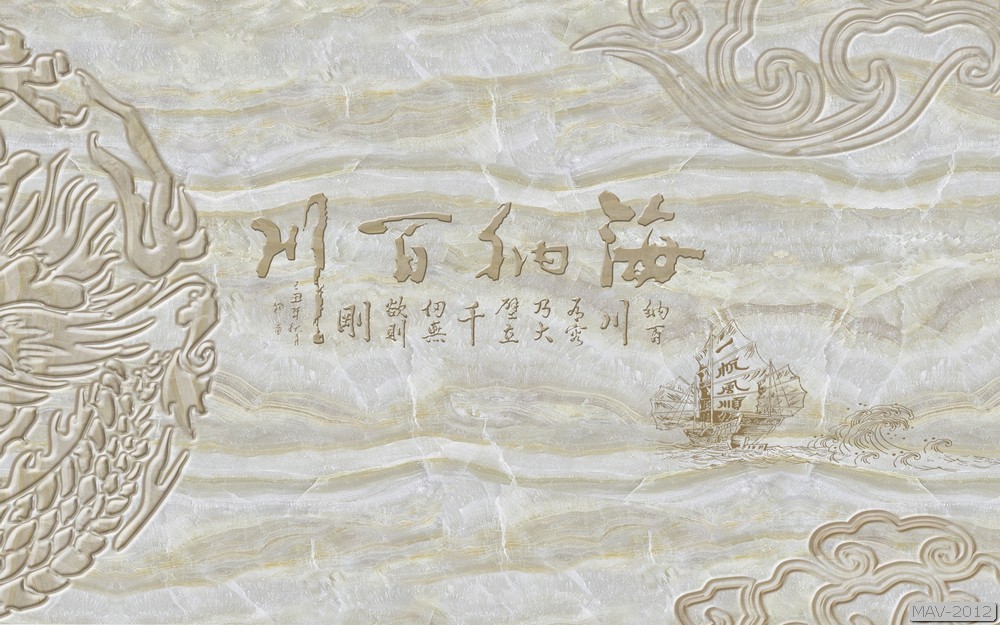 海納百川
納百川有容乃大壁立千仞無欲則剛
一帆風順
MAV-2012